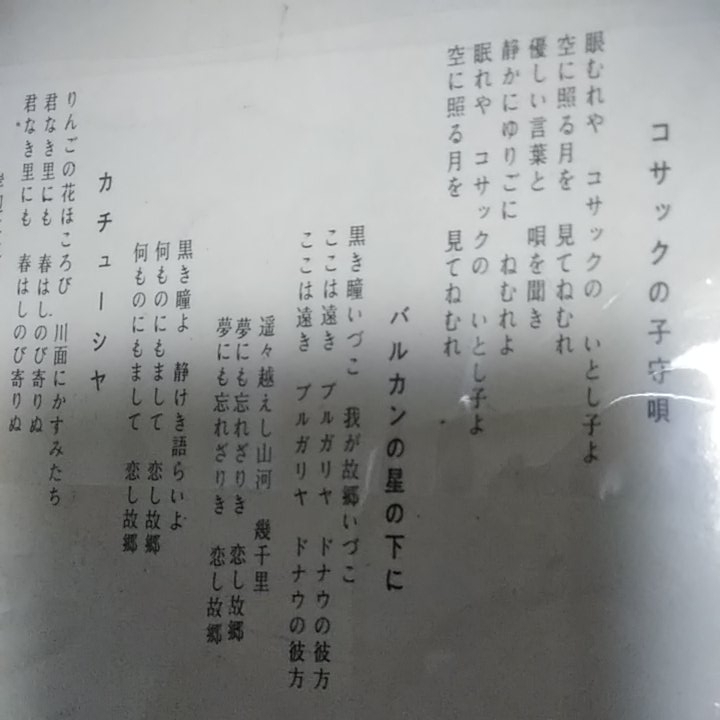 コサックの子守唄
眠むれや コサックの いとし子よ
空に照る月を 見てねむれ
優しい言葉と 唄を聞き
静かにゆりごに ねむれよ
眠れや コサックの いとし子よ
空に照る月を 見てねむれ
バルカンの星の下に
黒き瞳いづこ 我が故郷いづこ
ここは遠き ブルガリヤ ドナウの彼方
ここは遠き ブルガリヤ ドナウの彼方
遥々越えし山河 幾千里
夢にも忘れざりき 恋し故郷
夢にも忘れざりき 恋し故郷
黒き瞳よ 静けき語らいよ
何ものにもまして 恋し故郷
何ものにもまして 恋し故郷
カチューシヤ
りんごの花ほころび 川面にかすみたち
君なき里にも 春はしのび寄りぬ
君なき里にも 春はしのび寄りぬ